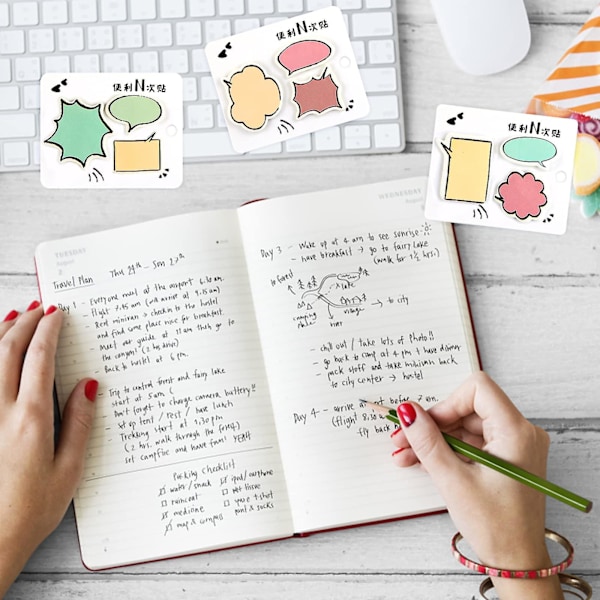 便利N次贴
便利N次贴
便利N次贴
TUESDAY
August
Travel Plan
Day 1 - Everyone meet at the airport 6.10 am.
- Flight 7.45 am (will arrive at 9.15 am)
- Rent minivan > checkin to the hostel
and find some place nice for breakfast.
- Meet our guide at 11 am then go to
the canyon! (2 hrs drive)
Back to hostel at 6 pm.
- Trip to central forest and fairy lake
start at 5 am
- Don't forget to charge camera battery!!
- Set up tent / rest / have lunch
- Trekking start at 1:30 pm
(2 hrs. walk through the forest)
set campfire and have fun! YEAH
Packing checklist
water/snack
raincoat
medicine
map & compass
ipad/earphone
wet tissue
spare t-shirt
pant & socks
WEDNESDAY
August
Day 3 - Wake up at 4 am to see sunrise
- have breakfast → go to fairy lake
(walk for 1½ hrs.)
to forest
lake
camping place
river
village
→ to city
- chill out / take lots of photo!!
- go back to camp at 4 pm + have dinner
- pack stuff and take minivan back
to city center → hostel
Day 4 - arrive at before 7 am.
(flight 8:30
fly back